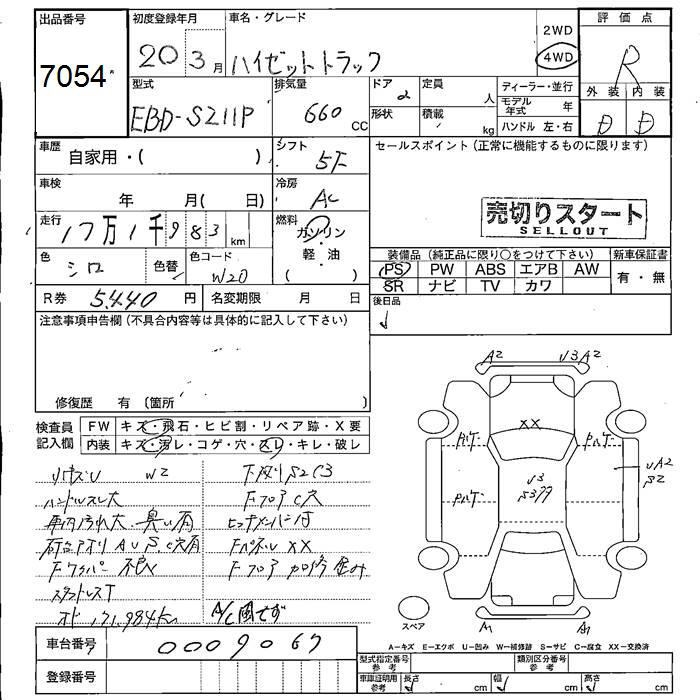 出品番号
7054
初度登録年月
20 3月
車名・グレード
ハイゼットトラック
2WD
4WD
評価点
R
外装 内装
D D
型式
EBD-S211P
排気量
660 CC
ドア
2
定員
人
形状
積載
kg
ディーラー・並行
モデル年式 年
ハンドル 左・右
車歴
自家用・( )
シフト
5F
セールスポイント(正常に機能するものに限ります)
車検
年 月( 日)
冷房
AC
売切りスタート
SELLOUT
走行
17万1千983km
燃料
ガソリン
・
軽・油
( )
色
シロ
色替
色コード
W20
装備品(純正品に限り○をつけて下さい)
新車保証書
PS PW ABS エアB AW
SR ナビ TV カワ
有・無
R券 5440円
名変期限 月 日
後日品
注意事項申告欄(不具合内容等は具体的に記入して下さい)
修復歴 有〔箇所 〕
検査員記入欄
FW キズ・飛石・ヒビ割・リペア跡・X要
内装 キズ・汚レ・コゲ・穴・スレ・キレ・破レ
W2
ハンドルスレ大
車内汚れ大 臭い有
スタッドレスT
オド171,984km
FフロアC穴
ヒッチメンバー付
FパネルXX
A/C風せず
A2
U3A2
XX
UA2
S2
U3
A1
A1
スペア
A-キズ E-エクボ U-凹み W-補修跡 S-サビ C-腐食 XX-交換済
車台番号
0009067
登録番号
型式指定番号 参考
類別区分番号 参考
車庫証明用 参考
長さ cm
幅 cm
高さ cm